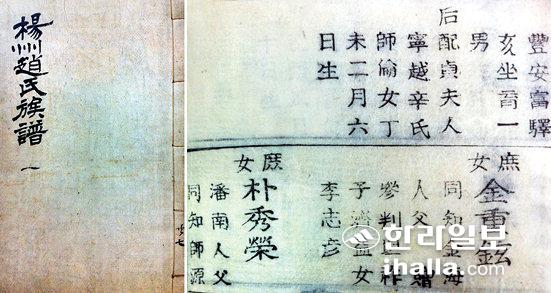 楊州趙氏族譜
一
豐安富驛
亥坐育一
男
后配貞夫人
寧越辛氏
師倫女丁
未二月六
日生
庶女
金重鉉
同知金海
人父贈
參判
子濟益女
李志彦
庶女
朴秀榮
潘南人父
同知師源
한라일보
ihalla.com